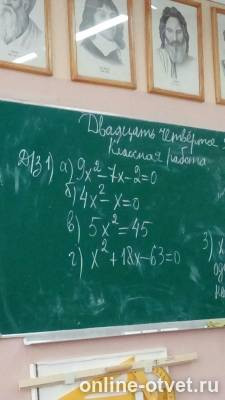 Двадцать четвёртое
Классная работа
Д/З 1) а) 9x²-7x-2=0
б) 4x²-x=0
в) 5x²=45
г) x²+18x-63=0
3) x
online-otvet.ru